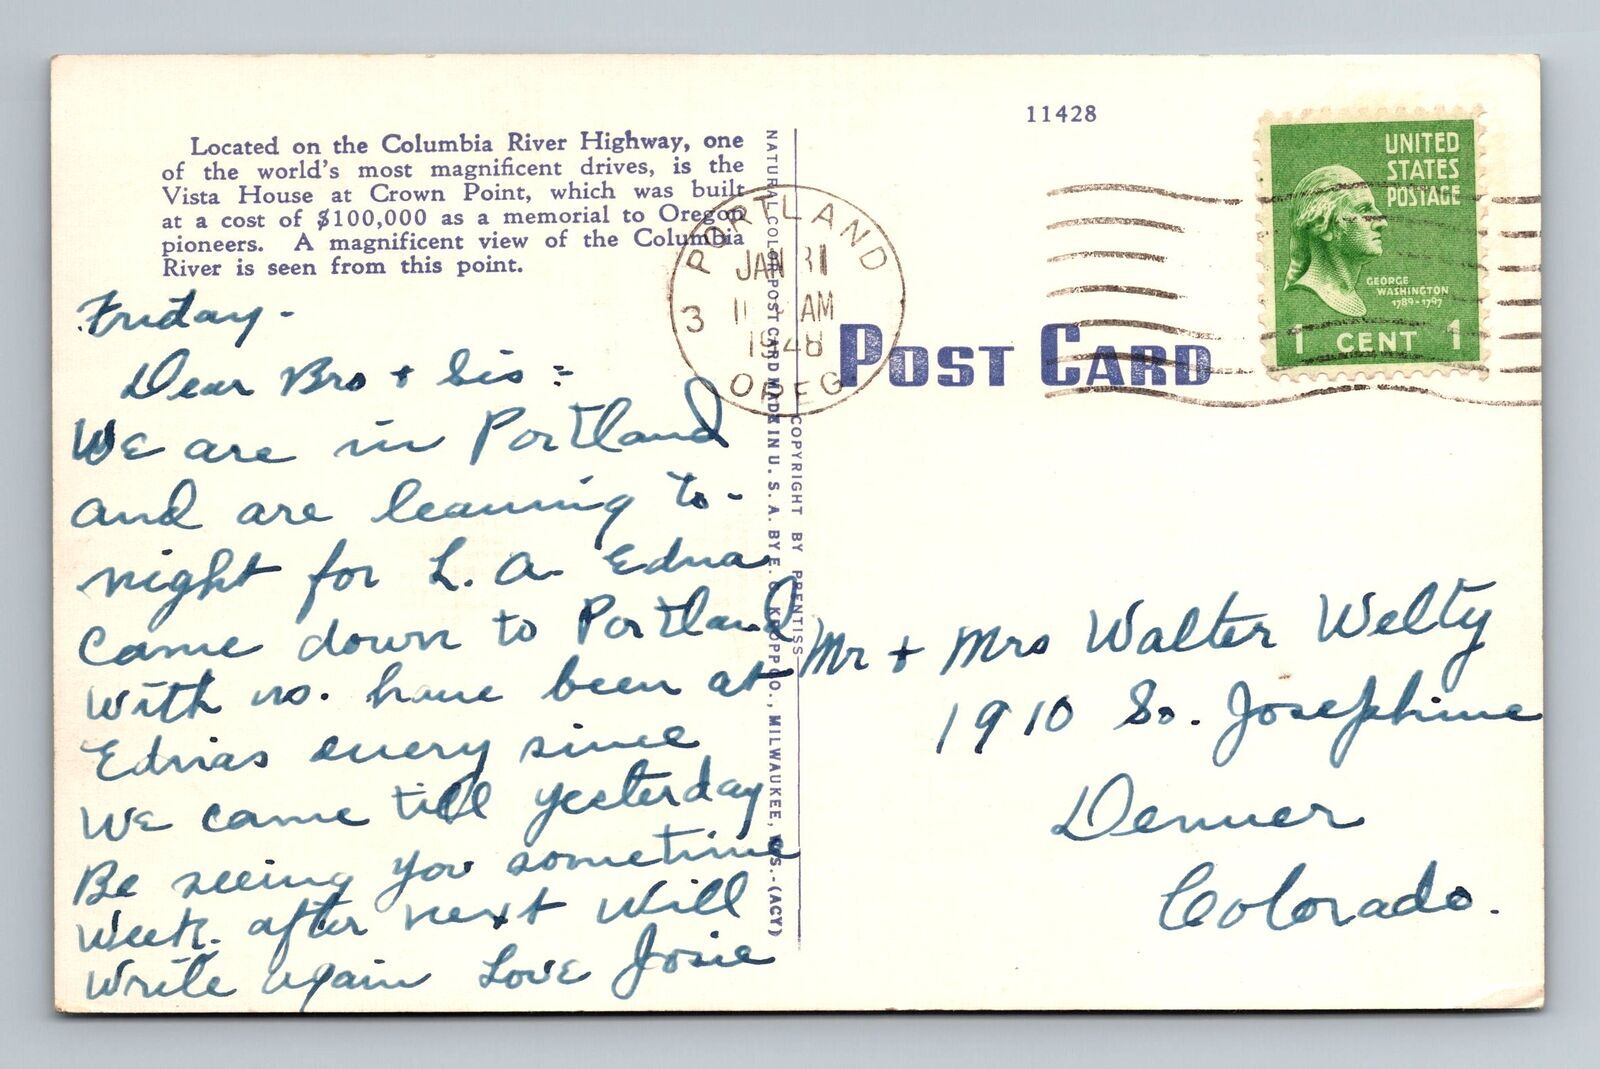 Located on the Columbia River Highway, one
of the world's most magnificent drives, is the
Vista House at Crown Point, which was built
at a cost of $100,000 as a memorial to Oregon
pioneers. A magnificent view of the Columbia
River is seen from this point.
Friday -
Dear Bro + Sis :
We are in Portland
and are leaving to-
night for L. A. Edna
came down to Portland
with us. have been at
Ednas every since
We came till yesterday
Be seeing you sometime
Week. after next Will
Write again Love Josie
NATURAL COLOR POST CARD MADE IN U. S. A. BY E. C. KROPP CO., MILWAUKEE, WIS.-(ACY)
COPYRIGHT BY PRENTISS
11428
PORTLAND
JAN 31
AM
1948
3
OREG
POST CARD
UNITED
STATES
POSTAGE
GEORGE
WASHINGTON
1789-1797
1 CENT 1
Mr + Mrs Walter Welty
1910 So. Josephine
Denver
Colorado.